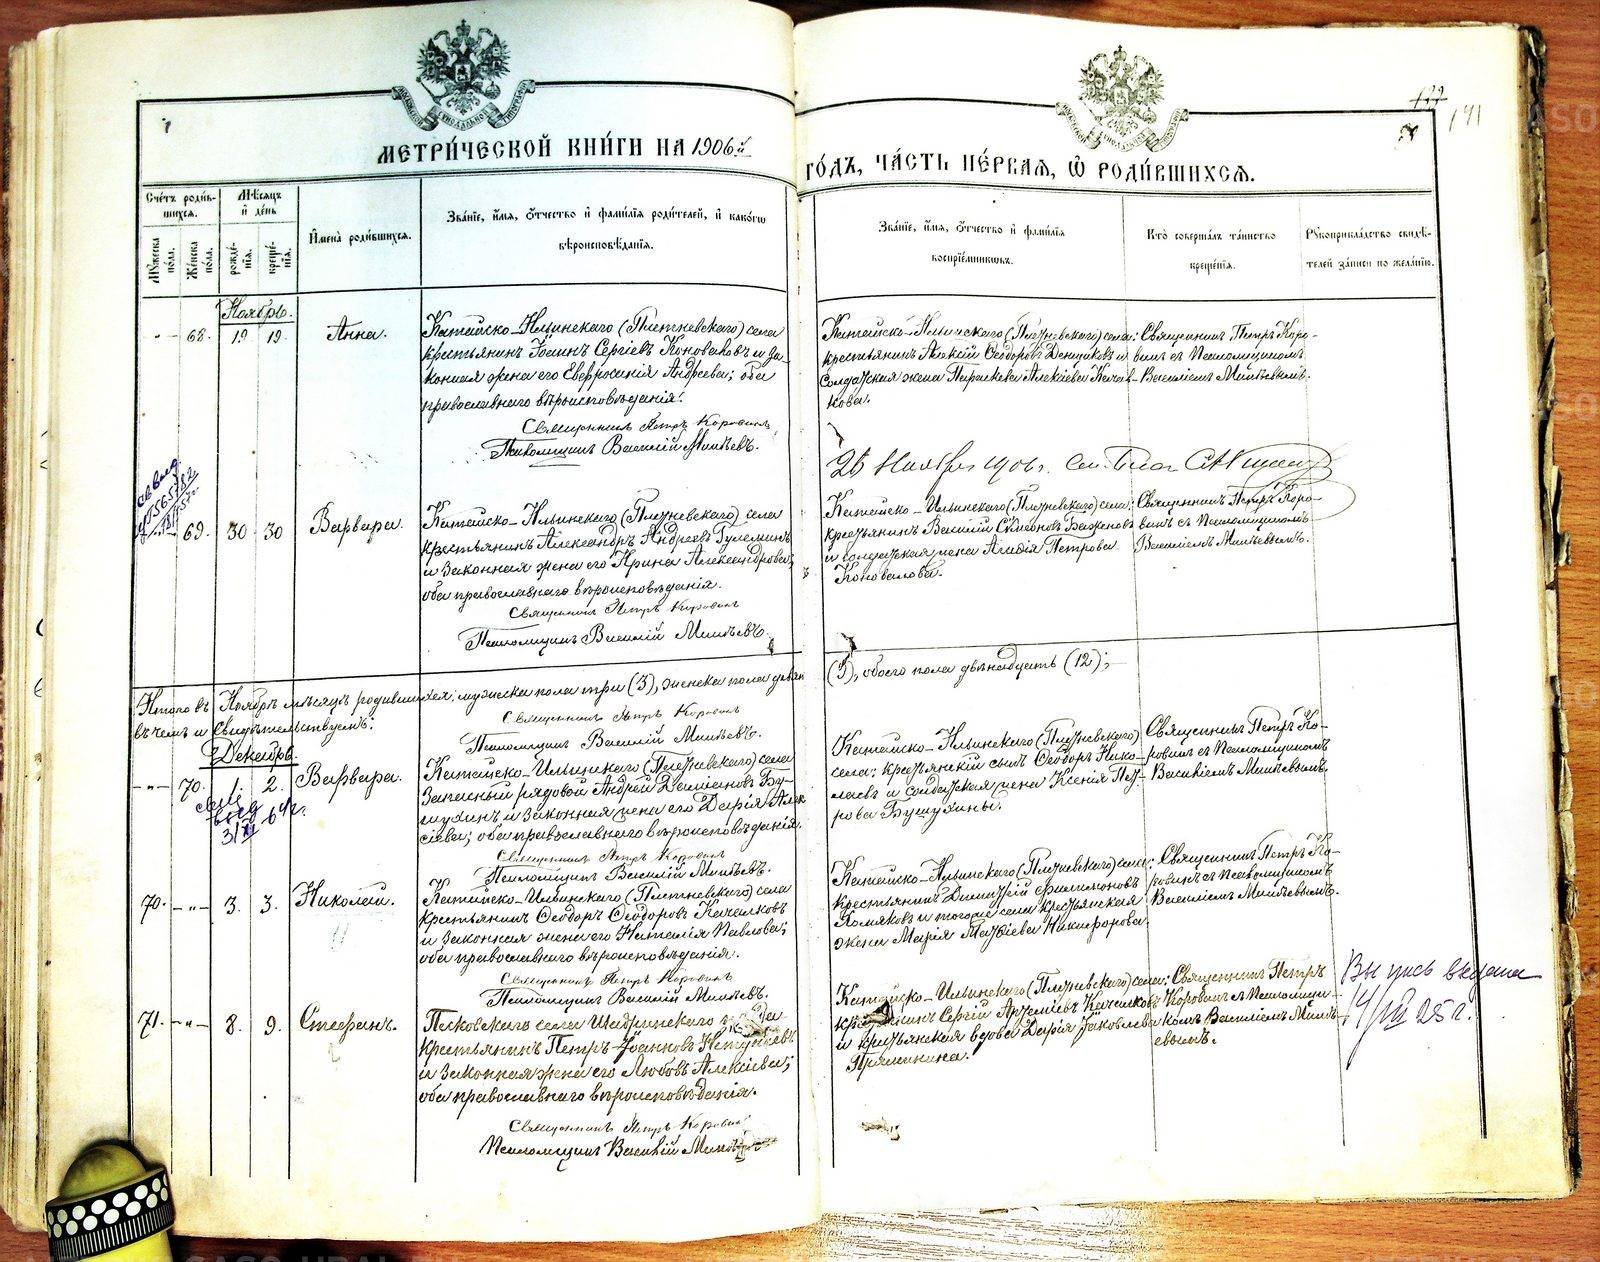 МЕТРИ́ЧЕСКОЙ КНИ́ГИ НА 1906й
ГО́ДЪ, ЧА́СТЬ ПЕ́РВАЯ, Ѡ РОДИ́ВШИХСЯ.
177
141
Сче́тъ роди́в-
шихся.
Мꙋжеска по́ла.
Же́нска по́ла.
Мѣ́сяцъ
и҆ де́нь
рожде́-
нїя.
креще́-
нїя.
И҆мена̀ роди́вшихся.
Зва́нїе, и҆́мя, ѻ҆́тчество и҆ фами́лїя роди́телей, и҆ како́гѡ
вѣроисповѣ́данїя.
Зва́нїе, и҆́мя, ѻ҆́тчество и҆ фами́лїя
воспрїе́мниковъ.
Кто̀ соверша́лъ та́инство
креще́нїя.
Рꙋкоприкла́дство свидѣ́-
телей за́писи по жела́нїю.
Ноябрь.
-"- 68. 19 19. Анна.
Катайско-Ильинскаго (Плетневскаго) села
крестьянинъ Іоаннъ Сергіевъ Коноваловъ и за-
конная жена его Евфросинія Андреева; оба
православнаго вѣроисповѣданія.
Священникъ Петръ Коровинъ
Псаломщикъ Василій
Катайско-Ильинскаго (Плетневскаго) села:
крестьянинъ Алексій Ѳеодоровъ и
солдатская жена Параскева Алексіева Качал-
кова.
Священникъ Петръ Коро-
винъ съ Псаломщикомъ
Василіемъ
26 Ноября 1906 г.
-"- 69. 30 30 Варвара.
Катайско-Ильинскаго (Плетневскаго) села
крестьянинъ Александръ Андреевъ
и законная жена его Ирина Александрова;
оба православнаго вѣроисповѣданія.
Священникъ Петръ Коровинъ
Псаломщикъ Василій
Катайско-Ильинскаго (Плетневскаго) села:
крестьянинъ Василій Симеоновъ Баженовъ
и солдатская жена Агафія Петрова
Коновалова.
Священникъ Петръ Коро-
винъ съ Псаломщикомъ
Василіемъ
Итого въ Ноябрѣ мѣсяцѣ родившихся: мужеска пола три (3), женска пола девять
(9), обоего пола двѣнадцать (12);
въ чемъ и свидѣтельствуемъ:
Священникъ Петръ Коровинъ
Псаломщикъ Василій
Декабрь.
-"- 70. 1. 2. Варвара.
Катайско-Ильинскаго (Плетневскаго) села
Запасный рядовой Андрей Даміановъ Бу-
шухинъ и законная жена его Дарія Алек-
сіева; оба православнаго вѣроисповѣданія.
Священникъ Петръ Коровинъ
Псаломщикъ Василій
Катайско-Ильинскаго (Плетневскаго)
села: крестьянскій сынъ Ѳеодоръ Нико-
лаевъ и солдатская жена Ксенія Пет-
рова Бушухины.
Священникъ Петръ Ко-
ровинъ съ Псаломщикомъ
Василіемъ
70. -"- 3. 3. Николай.
Катайско-Ильинскаго (Плетневскаго) села
крестьянинъ Ѳеодоръ Ѳеодоровъ Качалковъ
и законная жена его Наталія Павлова;
оба православнаго вѣроисповѣданія.
Священникъ Петръ Коровинъ
Псаломщикъ Василій
Катайско-Ильинскаго (Плетневскаго) села:
крестьянинъ Димитрій Филимоновъ
Хомяковъ и тогоже села крестьянская
жена Марія Матѳіева Никифорова.
Священникъ Петръ Ко-
ровинъ съ Псаломщикомъ
Василіемъ
71. -"- 8. 9. Стефанъ.
Песковскаго села Шадринскаго уѣзда
крестьянинъ Петръ Іоанновъ
и законная жена его Любовь Алексіева;
оба православнаго вѣроисповѣданія.
Священникъ Петръ Коровинъ
Псаломщикъ Василій
Катайско-Ильинскаго (Плетневскаго) села:
крестьянинъ Сергій Артеміевъ Качалковъ
и крестьянская вдова Дарія Іаковлева
Прямикина.
Священникъ Петръ
Коровинъ съ Псаломщи-
комъ Василіемъ
Выпись выдана
14/VII 25 г.